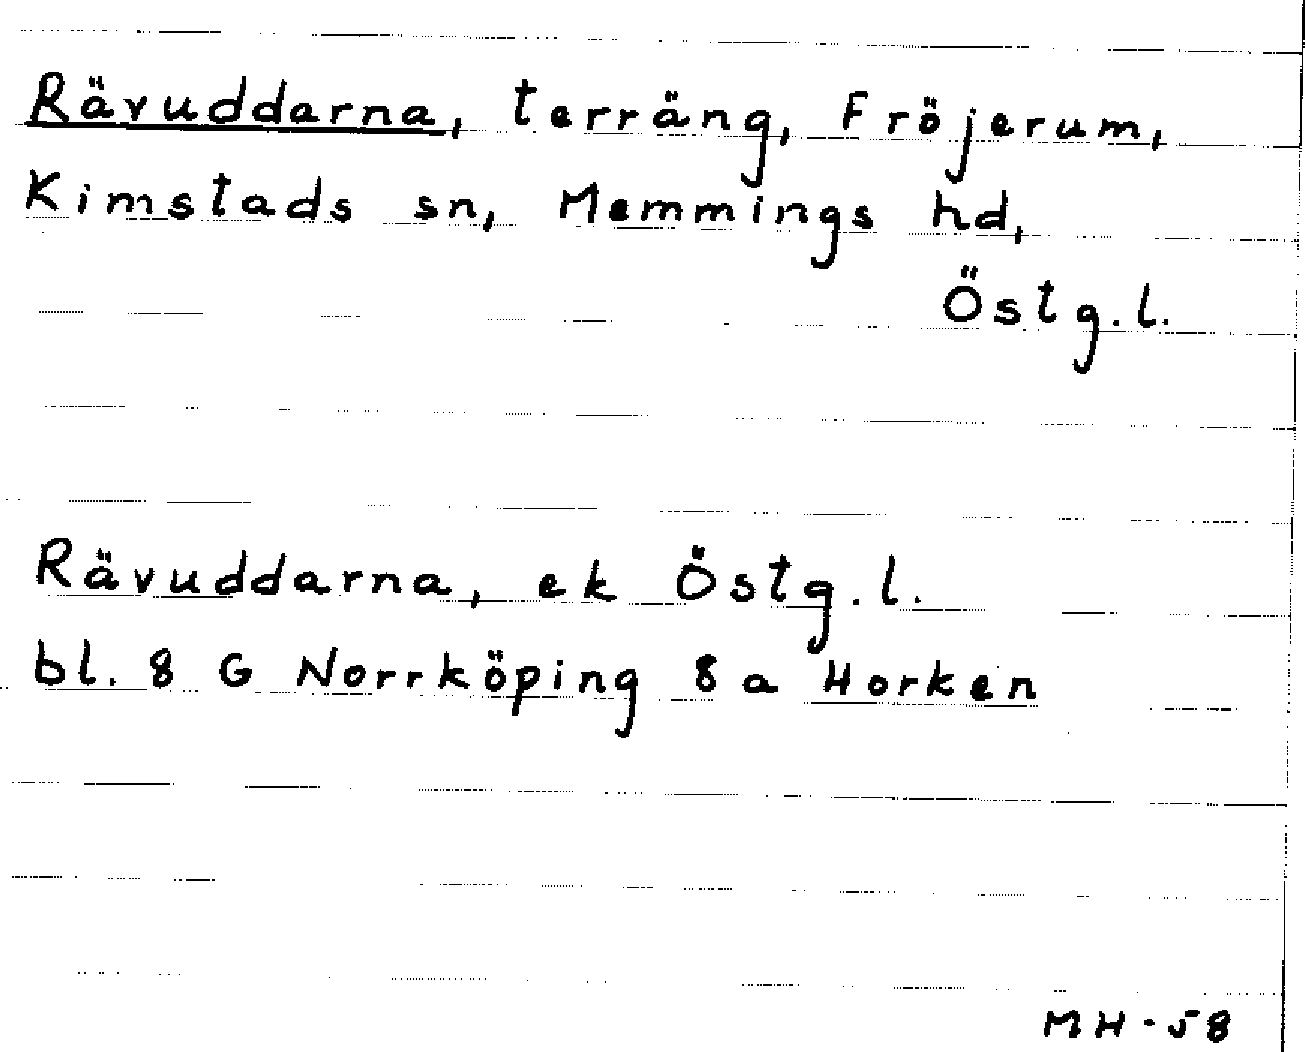 Rävuddarna, terräng, Fröjerum,
Kimstads sn, Memmings hd,
Östg.l.
Rävuddarna, ek Östg.l.
bl. 8 G Norrköping 8 a Horken
MH-58